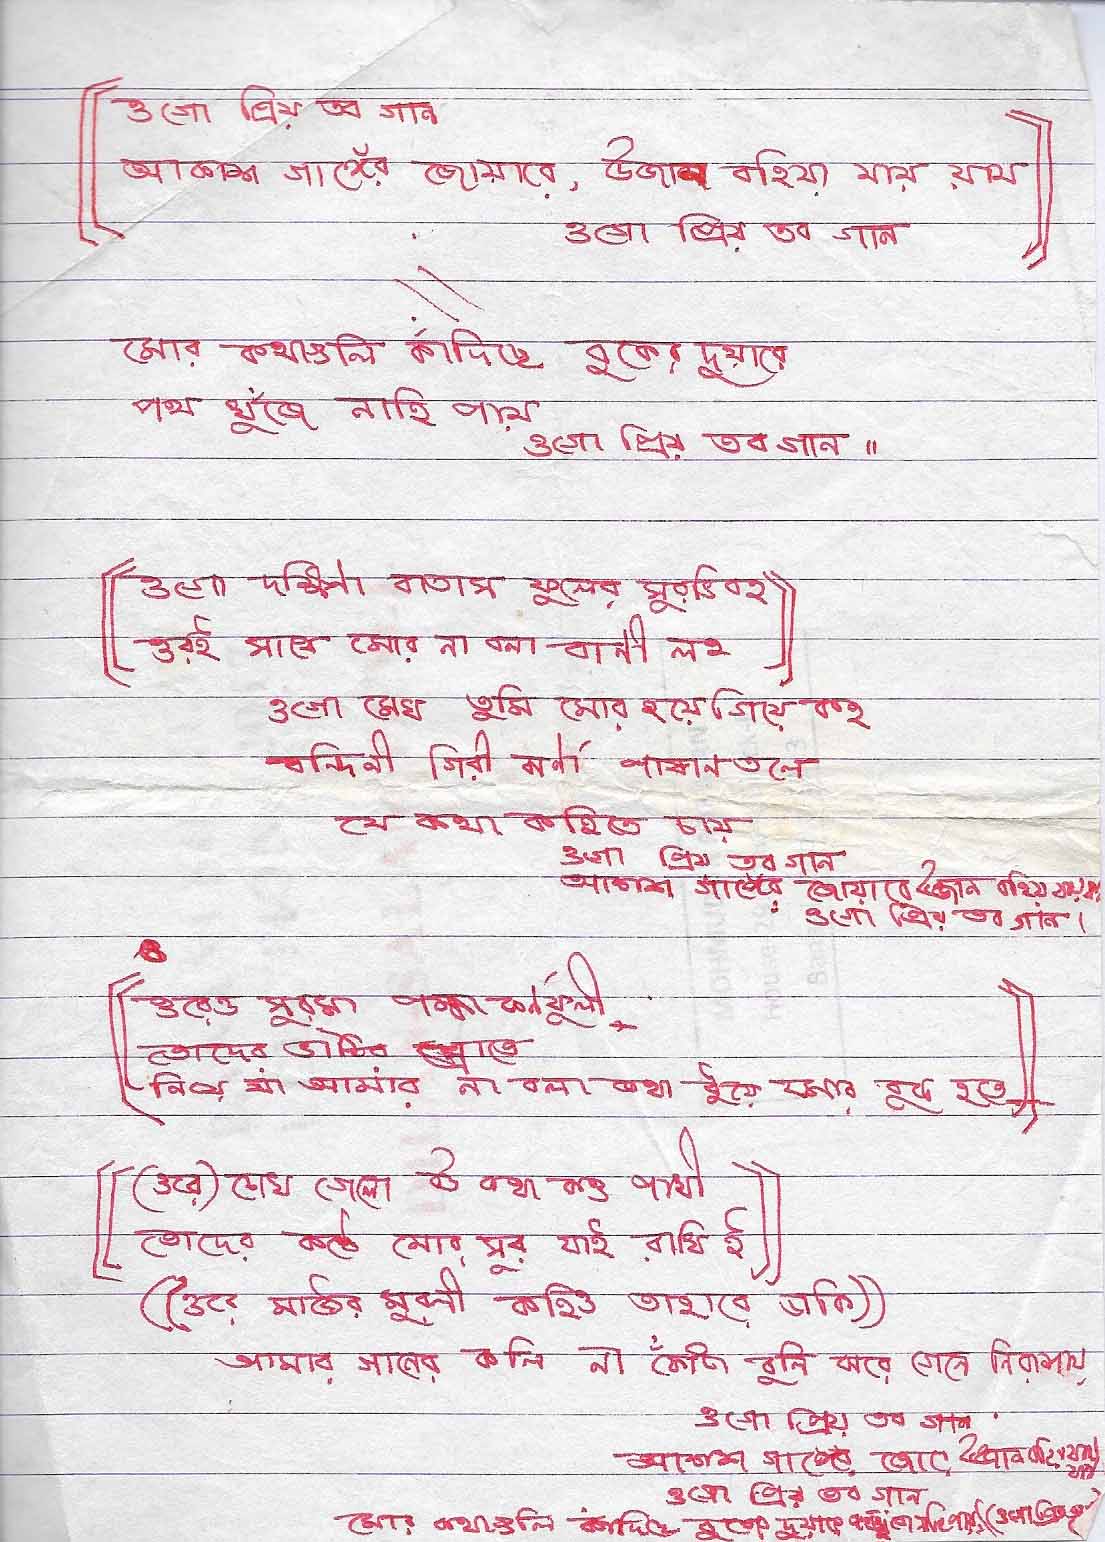 ওগো প্রিয় তব গান
আকাশ গাঙের জোয়ারে, উজান বহিয়া যায় যায়
ওগো প্রিয় তব গান
মোর কথাগুলি কাঁদিছে বুকের দুয়ারে
পথ খুঁজে নাহি পায়
ওগো প্রিয় তব গান ॥
ওগো দক্ষিনা বাতাস ফুলের সুরভি বহ
ওরই সাথে মোর না বলা বানী লহ
ওগো মেঘ তুমি মোর হয়ে গিয়ে কহ
বন্দিনী গিরী ঝর্ণা পাষান তলে
যে কথা কহিতে চায়
ওগো প্রিয় তব গান
আকাশ গাঙের জোয়ারে উজান বহিয়া যায়
ওগো প্রিয় তব গান।
ওরেও সুরমা পদ্মা কর্নফুলী
তোদের ভাটির স্রোতে
নিয়ে যা আমার না বলা কথা ধুঁয়ে মোর হৃদ হতে
(ওরে) চোখ গেলো বউ কথা কও পাখী
তোদের কন্ঠে মোর সুর যাই রাখি ই
((ওরে মাঠের মুরলী কহিও তাহারে ডাকি))
আমার গানের কলি না ফোঁটা বুলি ঝরে গেল নিরালায়
ওগো প্রিয় তব গান
আকাশ গাঙের উজান
ওগো প্রিয় তব গান
মোর কথাগুলি কাঁদিছে বুকের দুয়ারে